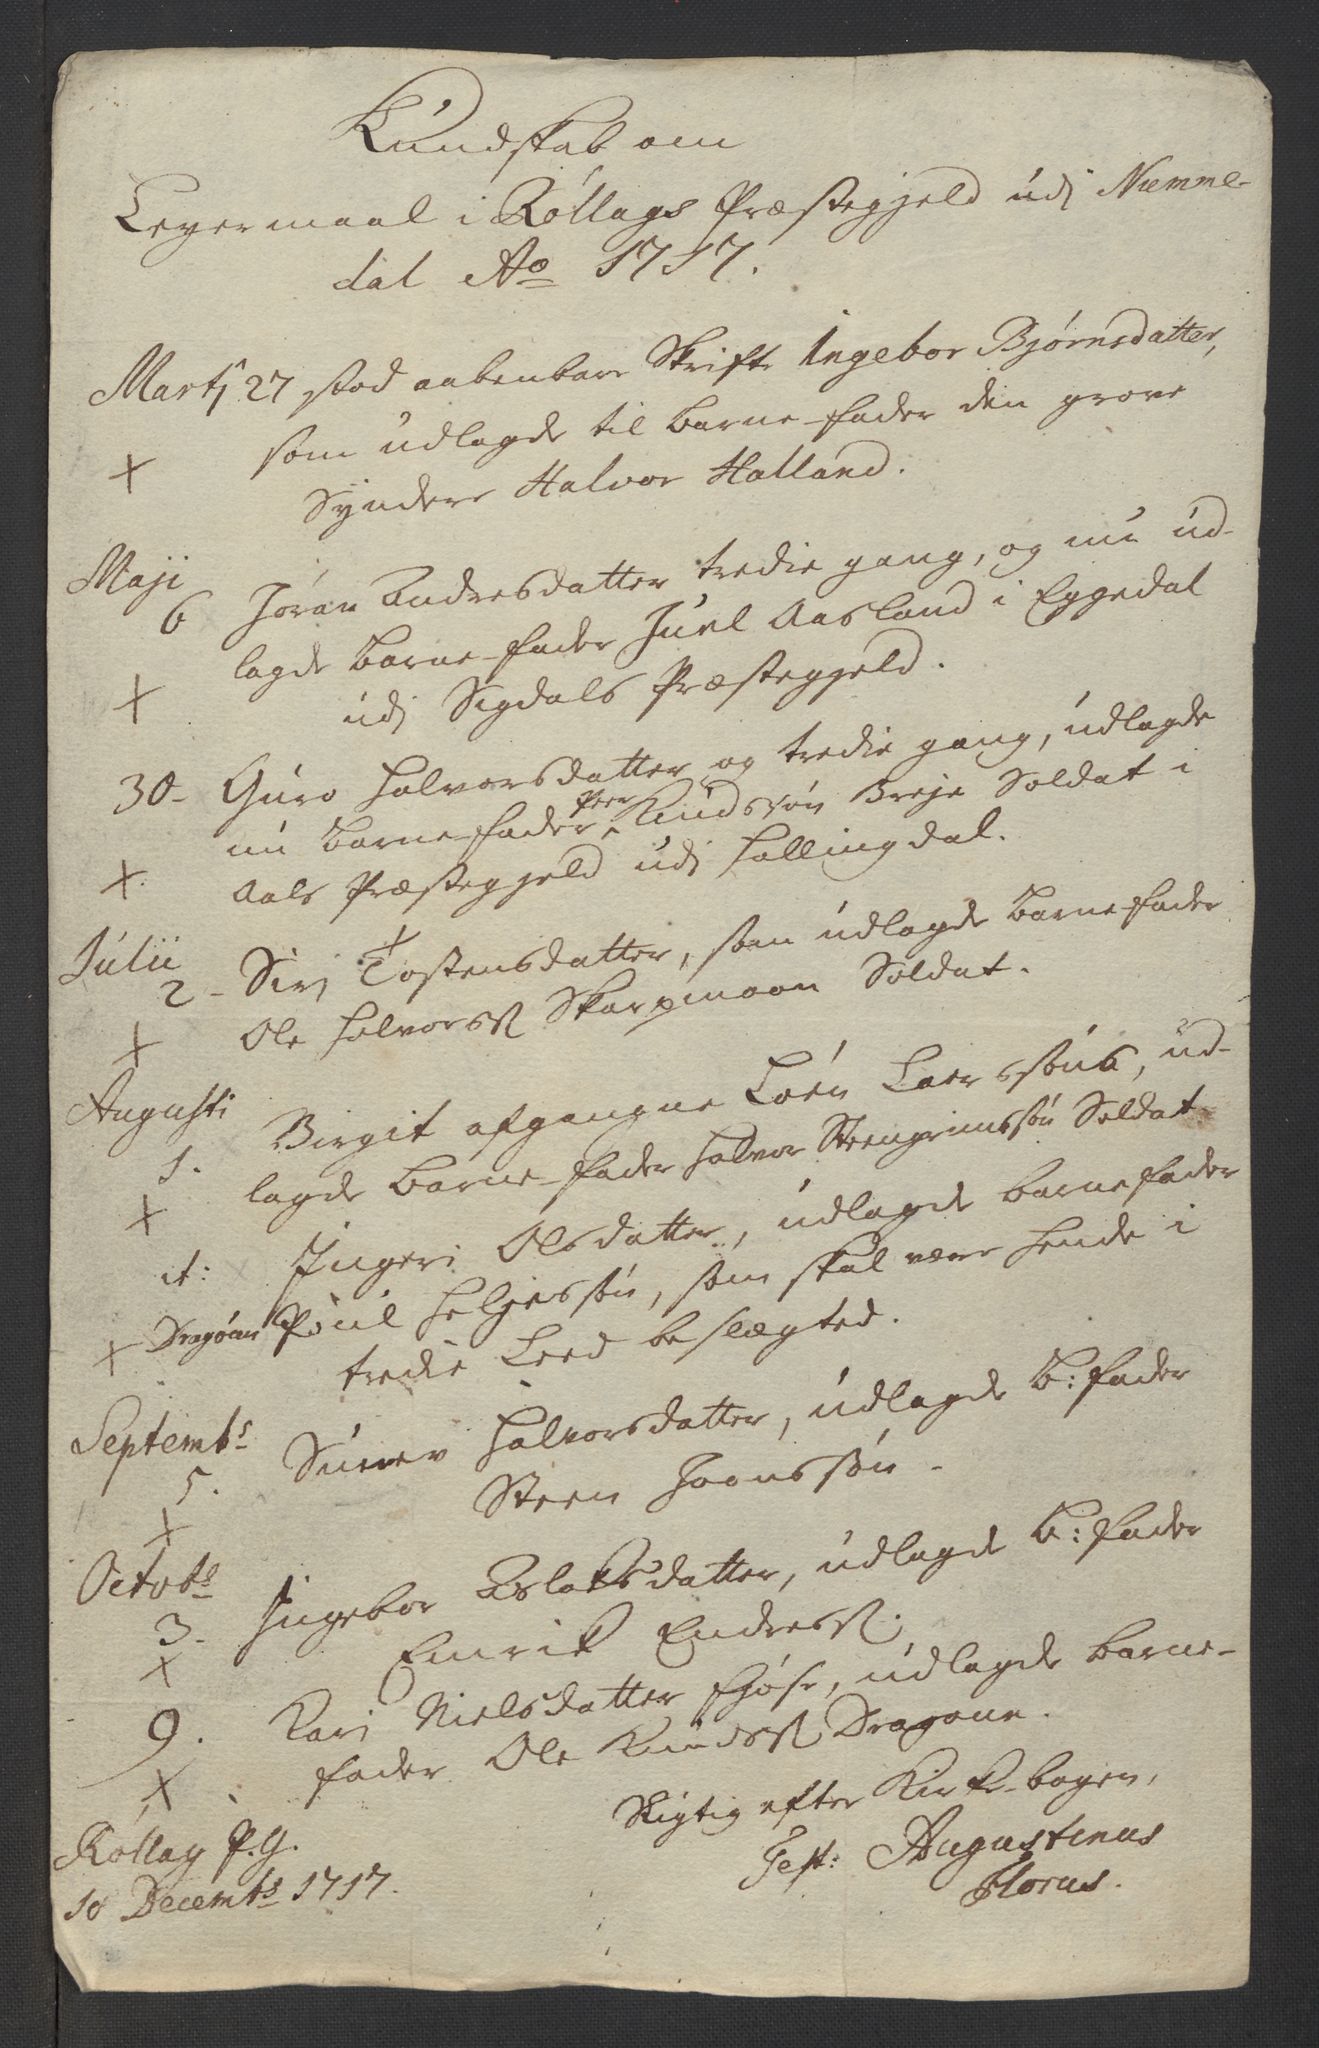 Kundskab om
Leyermaal i Rollags Præstegjeld udj Numme-
dal Ao 1717.
Martj 27 stod aabenbare Skrifte Ingebor Bjørnsdatter,
som udlagde til barne-fader den grove
x
Synder Halvor Halland.
Maji
6 Joran Andersdatter tredie gang, og nu ud-
lagde barne-fader Juul Aasland i Eggedal
x
udj Sigdals Præstegjeld.
30- Guro Halvorsdatter og tredie gang, udlagde
nu barne-fader Peer Knudssøn Breje Soldat i
x.
Aals Præstegjeld udj Hallingdal.
Julii
2- Sirj Tostensdatter, som udlagde barne-fader
x
Ole Halvorss. Skarpmoon Soldat.
Augusti
1. Birgit afgangne Loer Loerssøns, ud-
lagde barne-fader Halvor Steengrimssøn Soldat
x
it: Ingeri Olsdatter, udlagde barnefader
x Dragoun Poul Heljessøn, som skal være hende i
tredie Leed beslægted.
Septembr
5. Halvorsdatter, udlagde B: fader
x
Steen Joonssøn.
Octobr
3. Ingebor Aslaksdatter, udlagde B: fader
x
Emrik Endress.
9. Kari Nielsdatter udlagde barne-
x
fader Ole Knudss. Dragoun.
Rigtig efter Kirke-bogen,
Test: Augustinus
Florus.
Rollag P.G.
10 Decembr 1717.